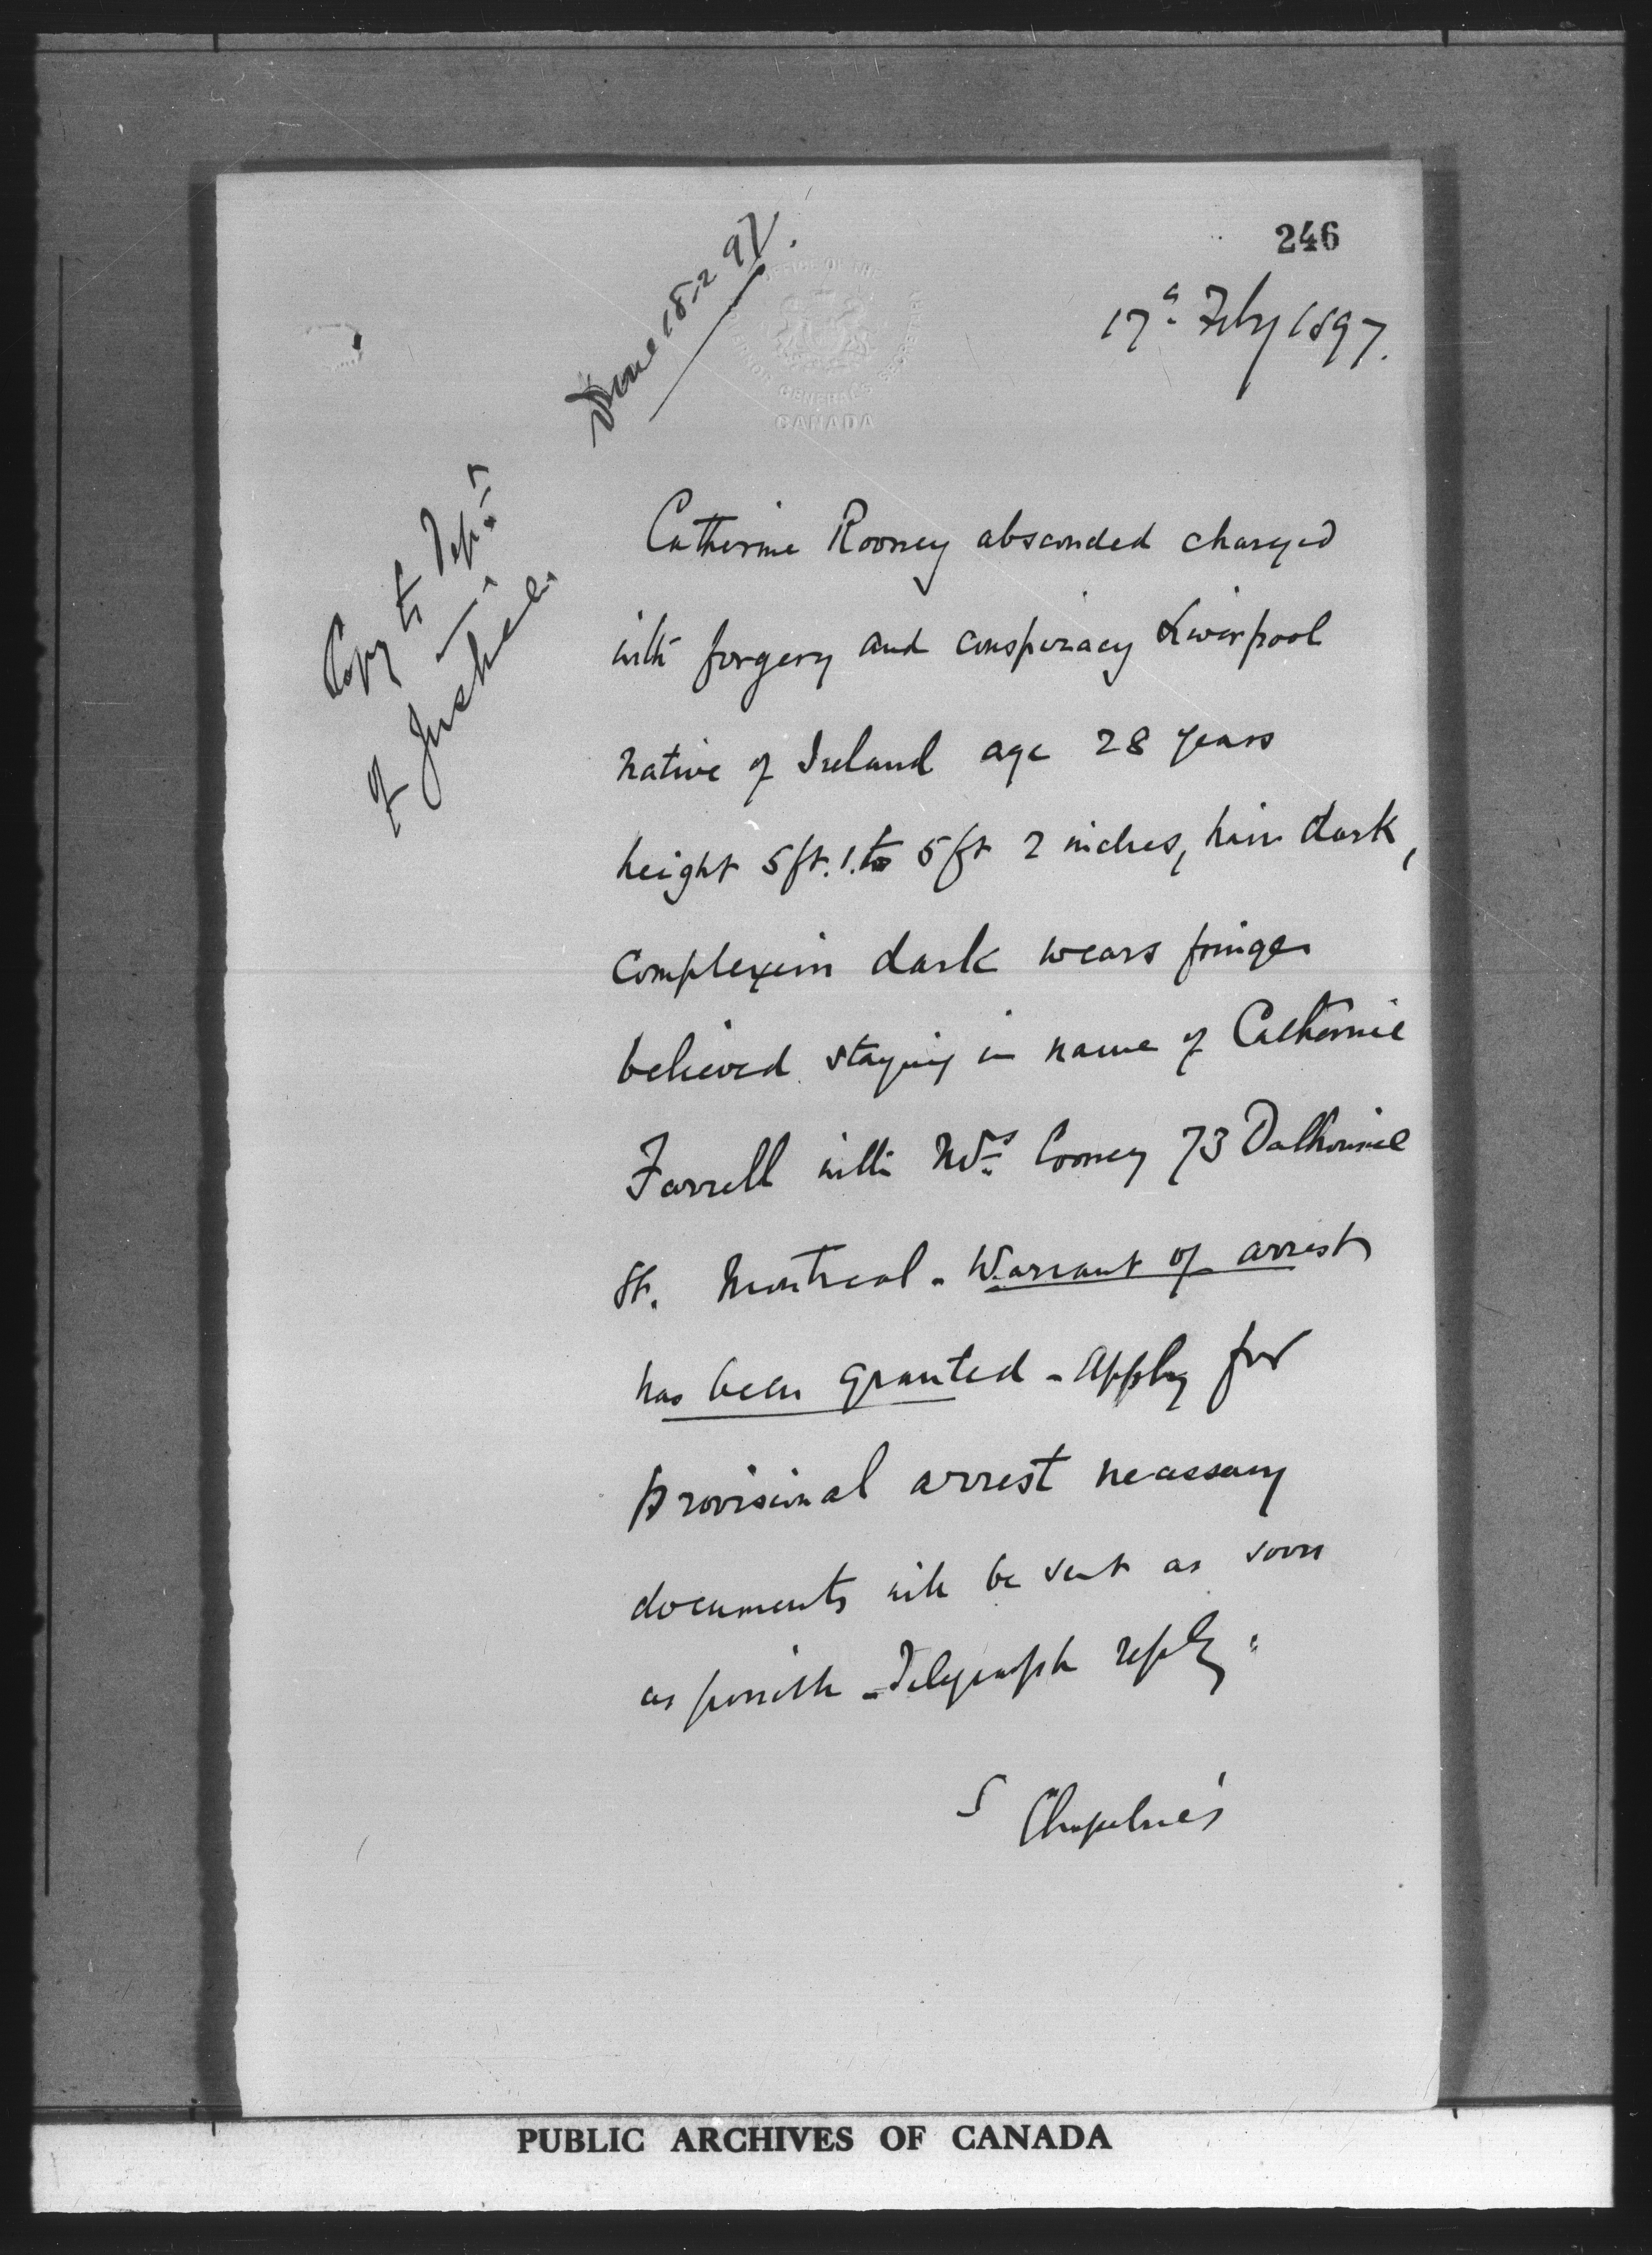 246
17th Feby 1897.
Done 18.2.97.
OFFICE OF THE
GOVERNOR GENERAL'S SECRETARY
CANADA
Copy to Dept
of Justice.
Catherine Rooney absconded charged
with forgery and conspiracy Liverpool
native of Ireland age 28 years
height 5ft. 1. to 5ft 2 inches, hair dark,
complexion dark wears fringe
believed staying in name of Catherine
Farrell with Mrs Cooney 73 Dalhousie
St. Montreal - Warrant of arrest
has been granted - apply for
provisional arrest necessary
documents will be sent as soon
as possible - Telegraph reply.
PUBLIC ARCHIVES OF CANADA